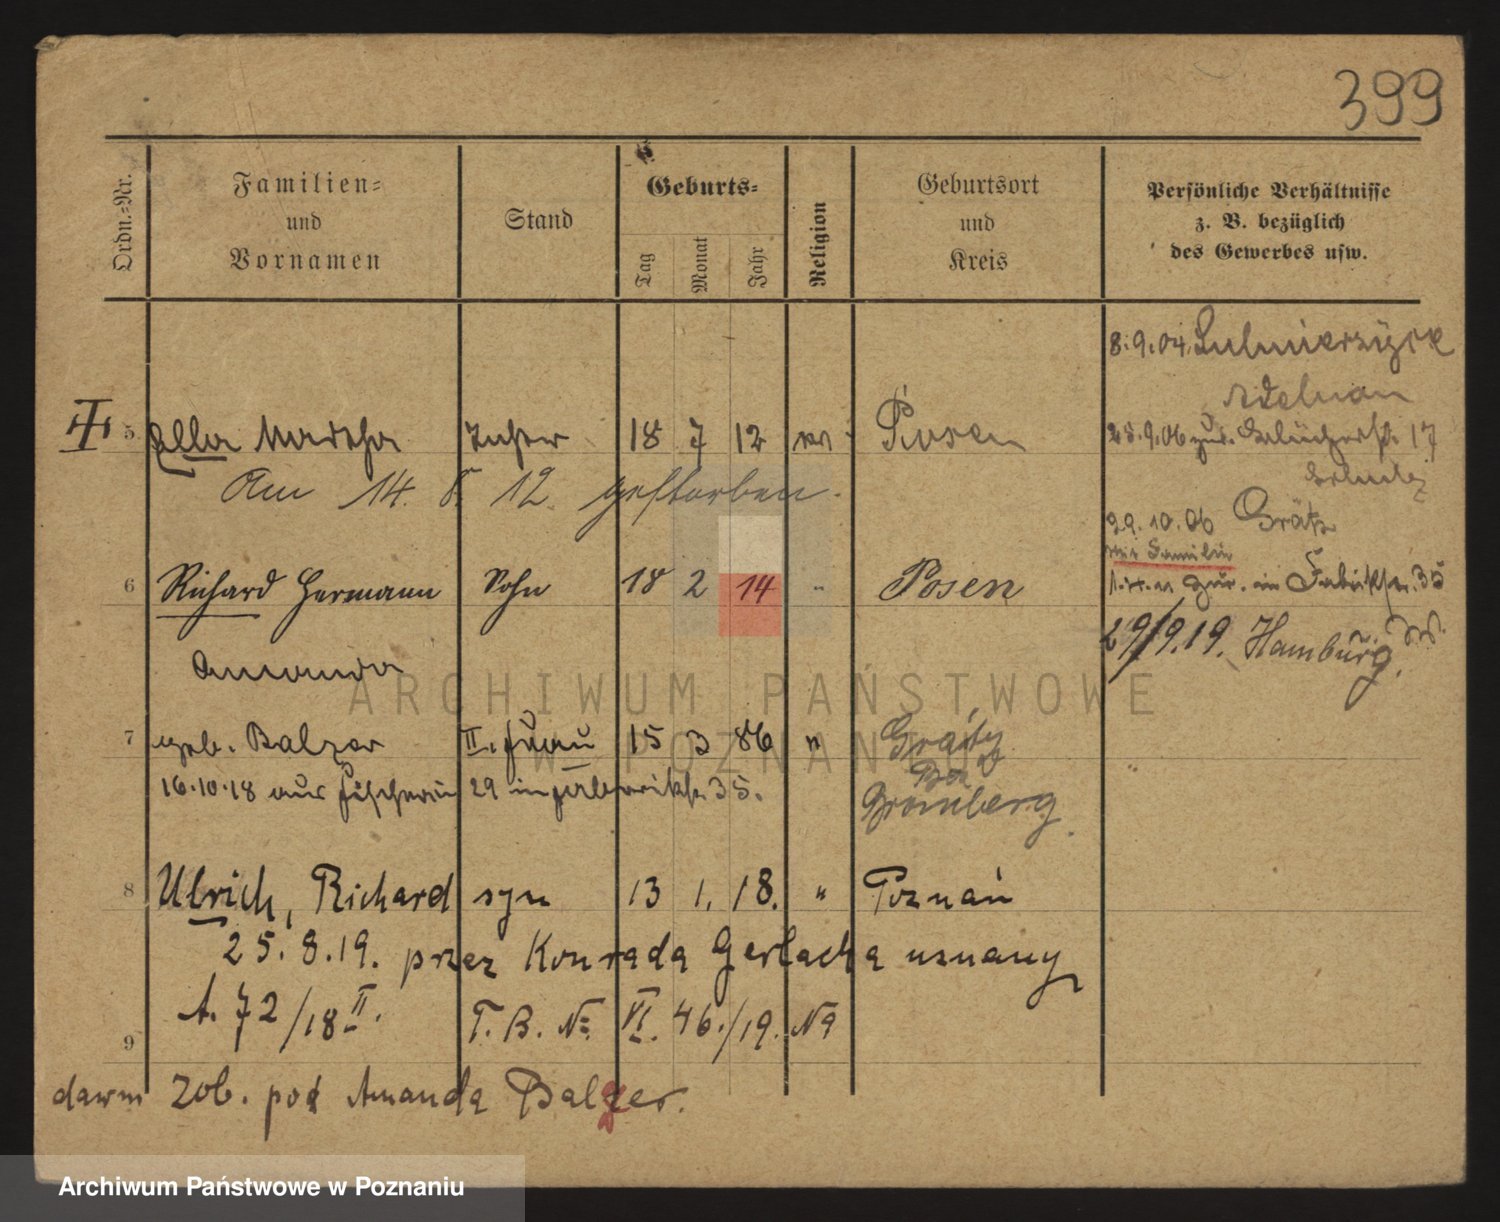 399
Ordn.-Nr.
Familien-
und
Vornamen
Stand
Geburts-
Tag
Monat
Jahr
Religion
Geburtsort
und
Kreis
Persönliche Verhältnisse
z. B. bezüglich
des Gewerbes usw.
8.9.04.
Adelnau
5 Ella Martha Tochter 18 7 12 Posen
25.9.06 17
Am 14. 8. 12. gestorben.
29.10.06 Grätz
6 Richard Hermann Sohn 18 2 14 " Posen
Fabrikstr. 35
29/9.19. Hamburg.
Amanda
7 geb. Balzer II. Frau 15 3 86 " Grätz
16.10.18 aus Fischerei 29 in Fabrikstr. 35.
Bromberg
8 Ulrich, Richard syn 13 1. 18. " Poznań
25.8.19. przez Konrada Gerlacha uznany
A. 72/18 II. T. B. № VI. 46./19. Na
9
dawn zob. pod Amanda Balzer.
ARCHIWUM PAŃSTWOWE
W POZNANIU
Archiwum Państwowe w Poznaniu